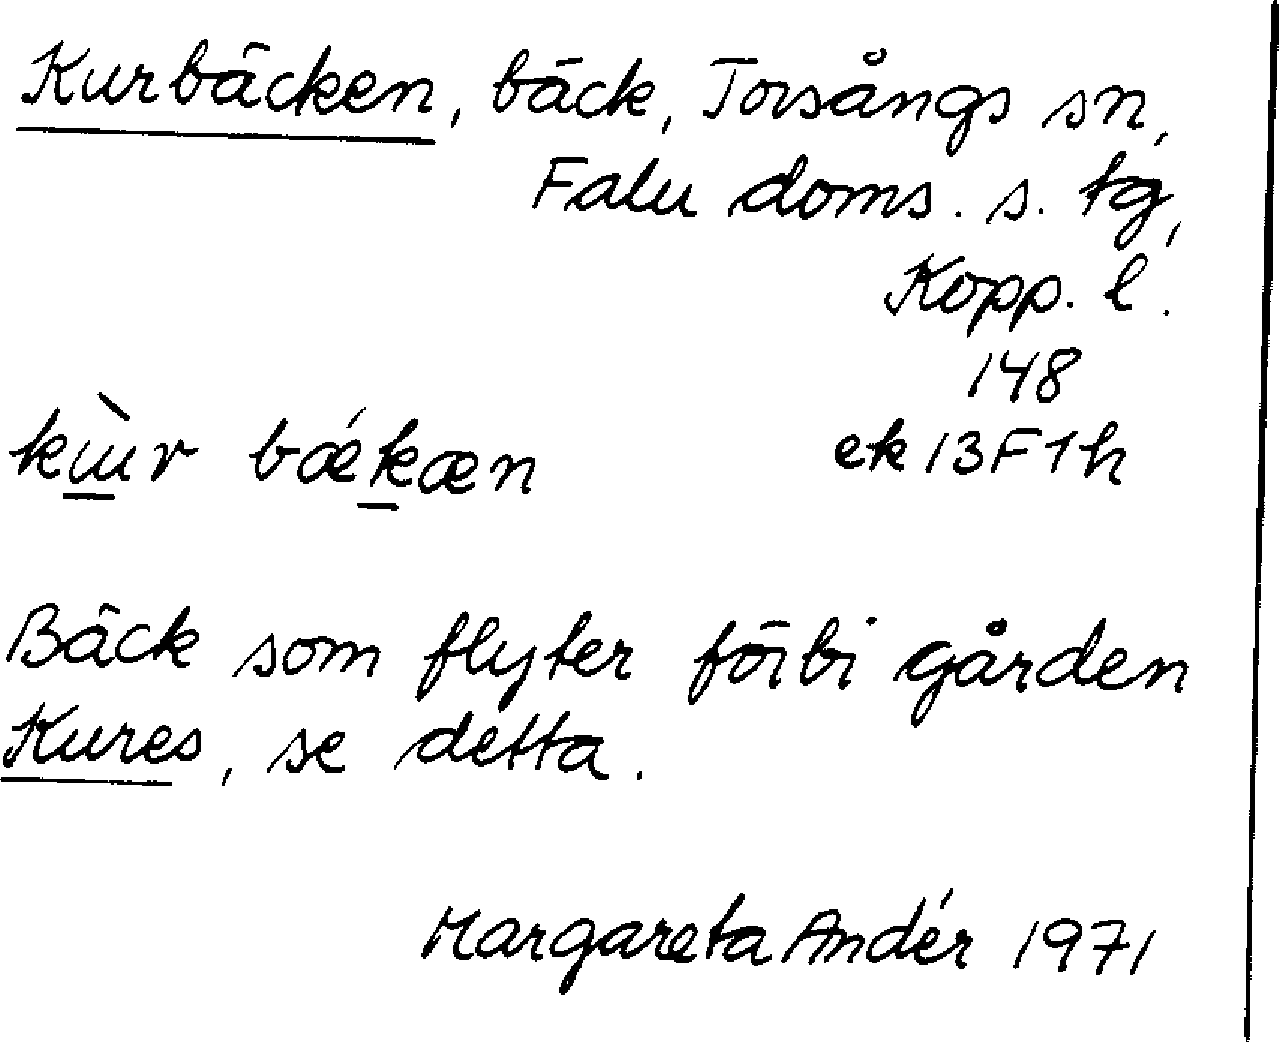 Kurbäcken, bäck, Torsångs sn,
Falu doms. s. tg,
Kopp. l.
148
kɯ̀r bǽkæn ek 13F1h
Bäck som flyter förbi gården
Kures, se detta.
Margareta Andér 1971